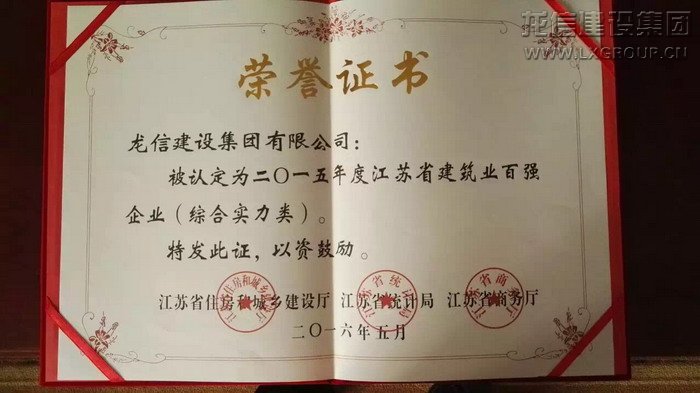 龙信建设集团
WWW.LXGROUP.CN
荣誉证书
龙信建设集团有限公司：
被认定为二〇一五年度江苏省建筑业百强
企业（综合实力类）。
特发此证，以资鼓励。
江苏省住房和城乡建设厅 江苏省统计局 江苏省商务厅
二〇一六年五月
江苏省住房和城乡建设厅
江苏省统计局
江苏省商务厅